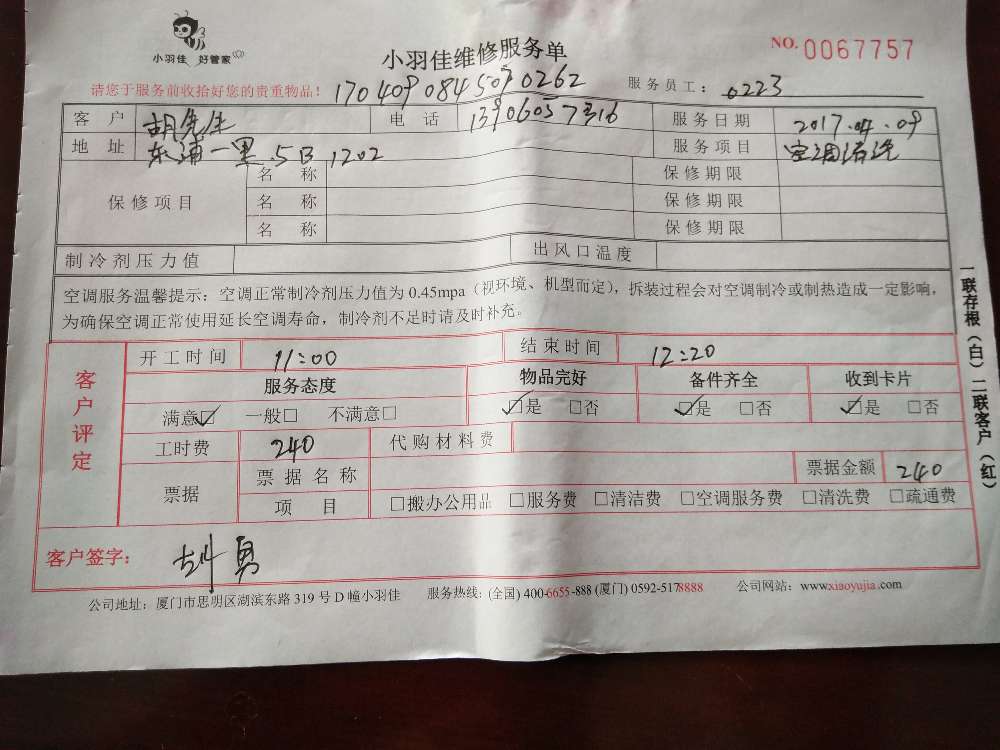 小羽佳 好管家
小羽佳维修服务单
NO. 0067757
请您于服务前收拾好您的贵重物品！ 170409084509 0262 服务员工： 0223
客户 胡先生 电话 13906057316 服务日期 2017.04.09
地址 东浦一里.5B 1202 服务项目 空调清洗
保修项目 名称 保修期限
名称 保修期限
名称 保修期限
制冷剂压力值 出风口温度
空调服务温馨提示：空调正常制冷剂压力值为0.45mpa（视环境、机型而定），拆装过程会对空调制冷或制热造成一定影响，
为确保空调正常使用延长空调寿命，制冷剂不足时请及时补充。
客户评定
开工时间 11:00 结束时间 12:20
服务态度 物品完好 备件齐全 收到卡片
满意☑ 一般□ 不满意□ ☑是 □否 ☑是 □否 ☑是 □否
工时费 240 代购材料费
票据 票据名称 票据金额 240
项目 □搬办公用品 □服务费 □清洁费 □空调服务费 □清洗费 □疏通费
客户签字： 胡勇
公司地址：厦门市思明区湖滨东路319号D幢小羽佳 服务热线：(全国) 400-6655-888 (厦门) 0592-5178888 公司网站：www.xiaoyujia.com
一联存根（白）二联客户（红）